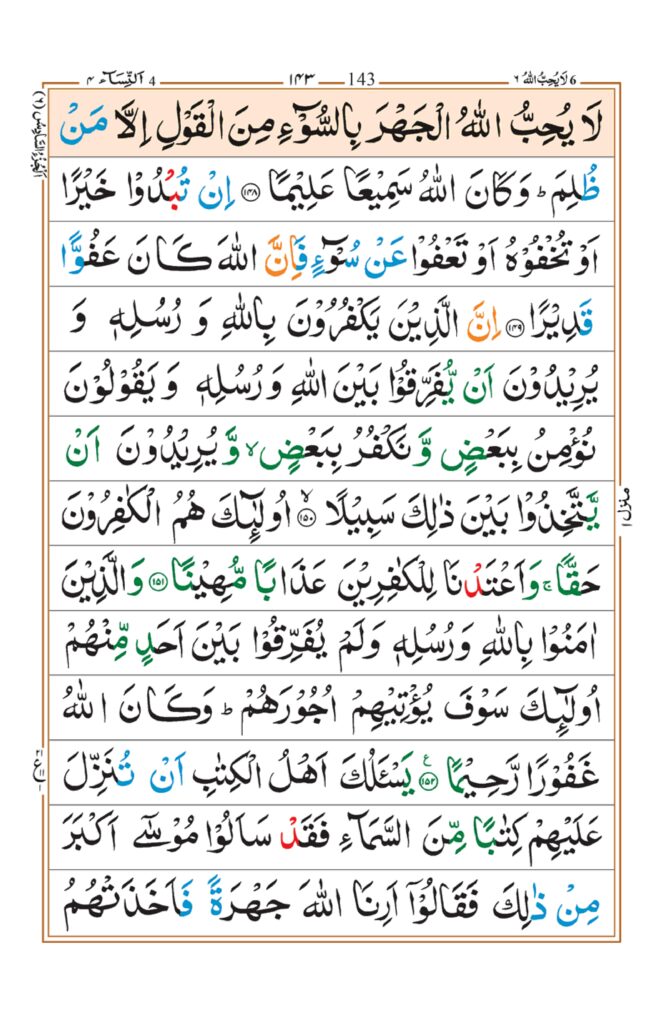 6 لَا يُحِبُّ اللهُ ٦
143 ١٤٣
4 اَلنِّسَآء ٤
اَلْجُزْءُ السَّادِسُ (٦)
لَا يُحِبُّ اللهُ الْجَهْرَ بِالسُّوْٓءِ مِنَ الْقَوْلِ اِلَّا مَنْ
ظُلِمَ ؕ وَكَانَ اللهُ سَمِيْعًا عَلِيْمًا ﴿۱۴۸﴾ اِنْ تُبْدُوْا خَيْرًا
اَوْ تُخْفُوْهُ اَوْ تَعْفُوْا عَنْ سُوْٓءٍ فَاِنَّ اللهَ كَانَ عَفُوًّا
قَدِيْرًا ﴿۱۴۹﴾ اِنَّ الَّذِيْنَ يَكْفُرُوْنَ بِاللهِ وَ رُسُلِهٖ وَ
يُرِيْدُوْنَ اَنْ يُّفَرِّقُوْا بَيْنَ اللهِ وَ رُسُلِهٖ وَ يَقُوْلُوْنَ
نُؤْمِنُ بِبَعْضٍ وَّ نَكْفُرُ بِبَعْضٍ ۙ وَّ يُرِيْدُوْنَ اَنْ
يَّتَّخِذُوْا بَيْنَ ذٰلِكَ سَبِيْلًا ۙ﴿۱۵۰﴾ اُولٰٓئِكَ هُمُ الْكٰفِرُوْنَ
حَقًّا ۚ وَاَعْتَدْنَا لِلْكٰفِرِيْنَ عَذَابًا مُّهِيْنًا ﴿۱۵۱﴾ وَالَّذِيْنَ
اٰمَنُوْا بِاللهِ وَرُسُلِهٖ وَلَمْ يُفَرِّقُوْا بَيْنَ اَحَدٍ مِّنْهُمْ
اُولٰٓئِكَ سَوْفَ يُؤْتِيْهِمْ اُجُوْرَهُمْ ؕ وَكَانَ اللهُ
غَفُوْرًا رَّحِيْمًا ﴿۱۵۲﴾ ع يَسْـَٔلُكَ اَهْلُ الْكِتٰبِ اَنْ تُنَزِّلَ
عَلَيْهِمْ كِتٰبًا مِّنَ السَّمَآءِ فَقَدْ سَاَلُوْا مُوْسٰٓى اَكْبَرَ
مِنْ ذٰلِكَ فَقَالُوْٓا اَرِنَا اللهَ جَهْرَةً فَاَخَذَتْهُمُ
منزل ١